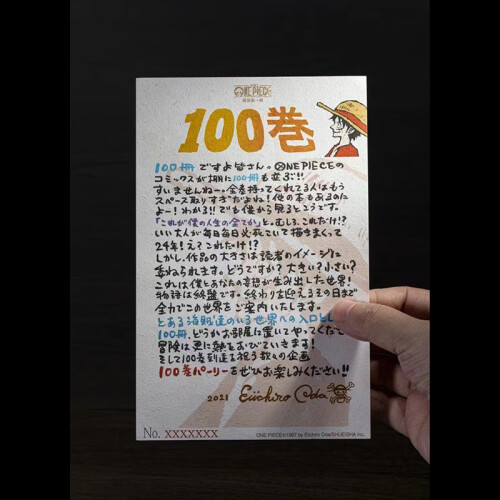 ONE PIECE
尾田栄一郎
100巻
100冊ですよ皆さん。ONE PIECEの
コミックスが棚に100冊も並ぶ!!
すいませんねー。全巻持ってくれてる人はもう
スペース取りすぎだよね!他の本もあるのに
よー!わかる!!でも僕から見るとこうです。
「これが僕の人生の全てか」と。むしろこれだけ!?
いい大人が毎日毎日必死こいて描きまくって
24年!え?これだけ!?
しかし、作品の大きさは読者のイメージに
委ねられます。どうですか?大きい?小さい?
これは僕とあなたの妄想が生み出した世界!
物語は終盤です。終わりを迎えるその日まで
全力でこの世界をご案内いたします。
とある海賊達のいる世界への入口とし
100冊、どうかお部屋に置いてやってくだ
冒険は更に熱をおびていきます!
そして100巻到達を祝う数々の企画
100巻パーリーをぜひお楽しみください!!
2021 Eiichiro Oda
No. XXXXXXX
ONE PIECE©1997 by Eiichiro Oda/SHUEISHA Inc.